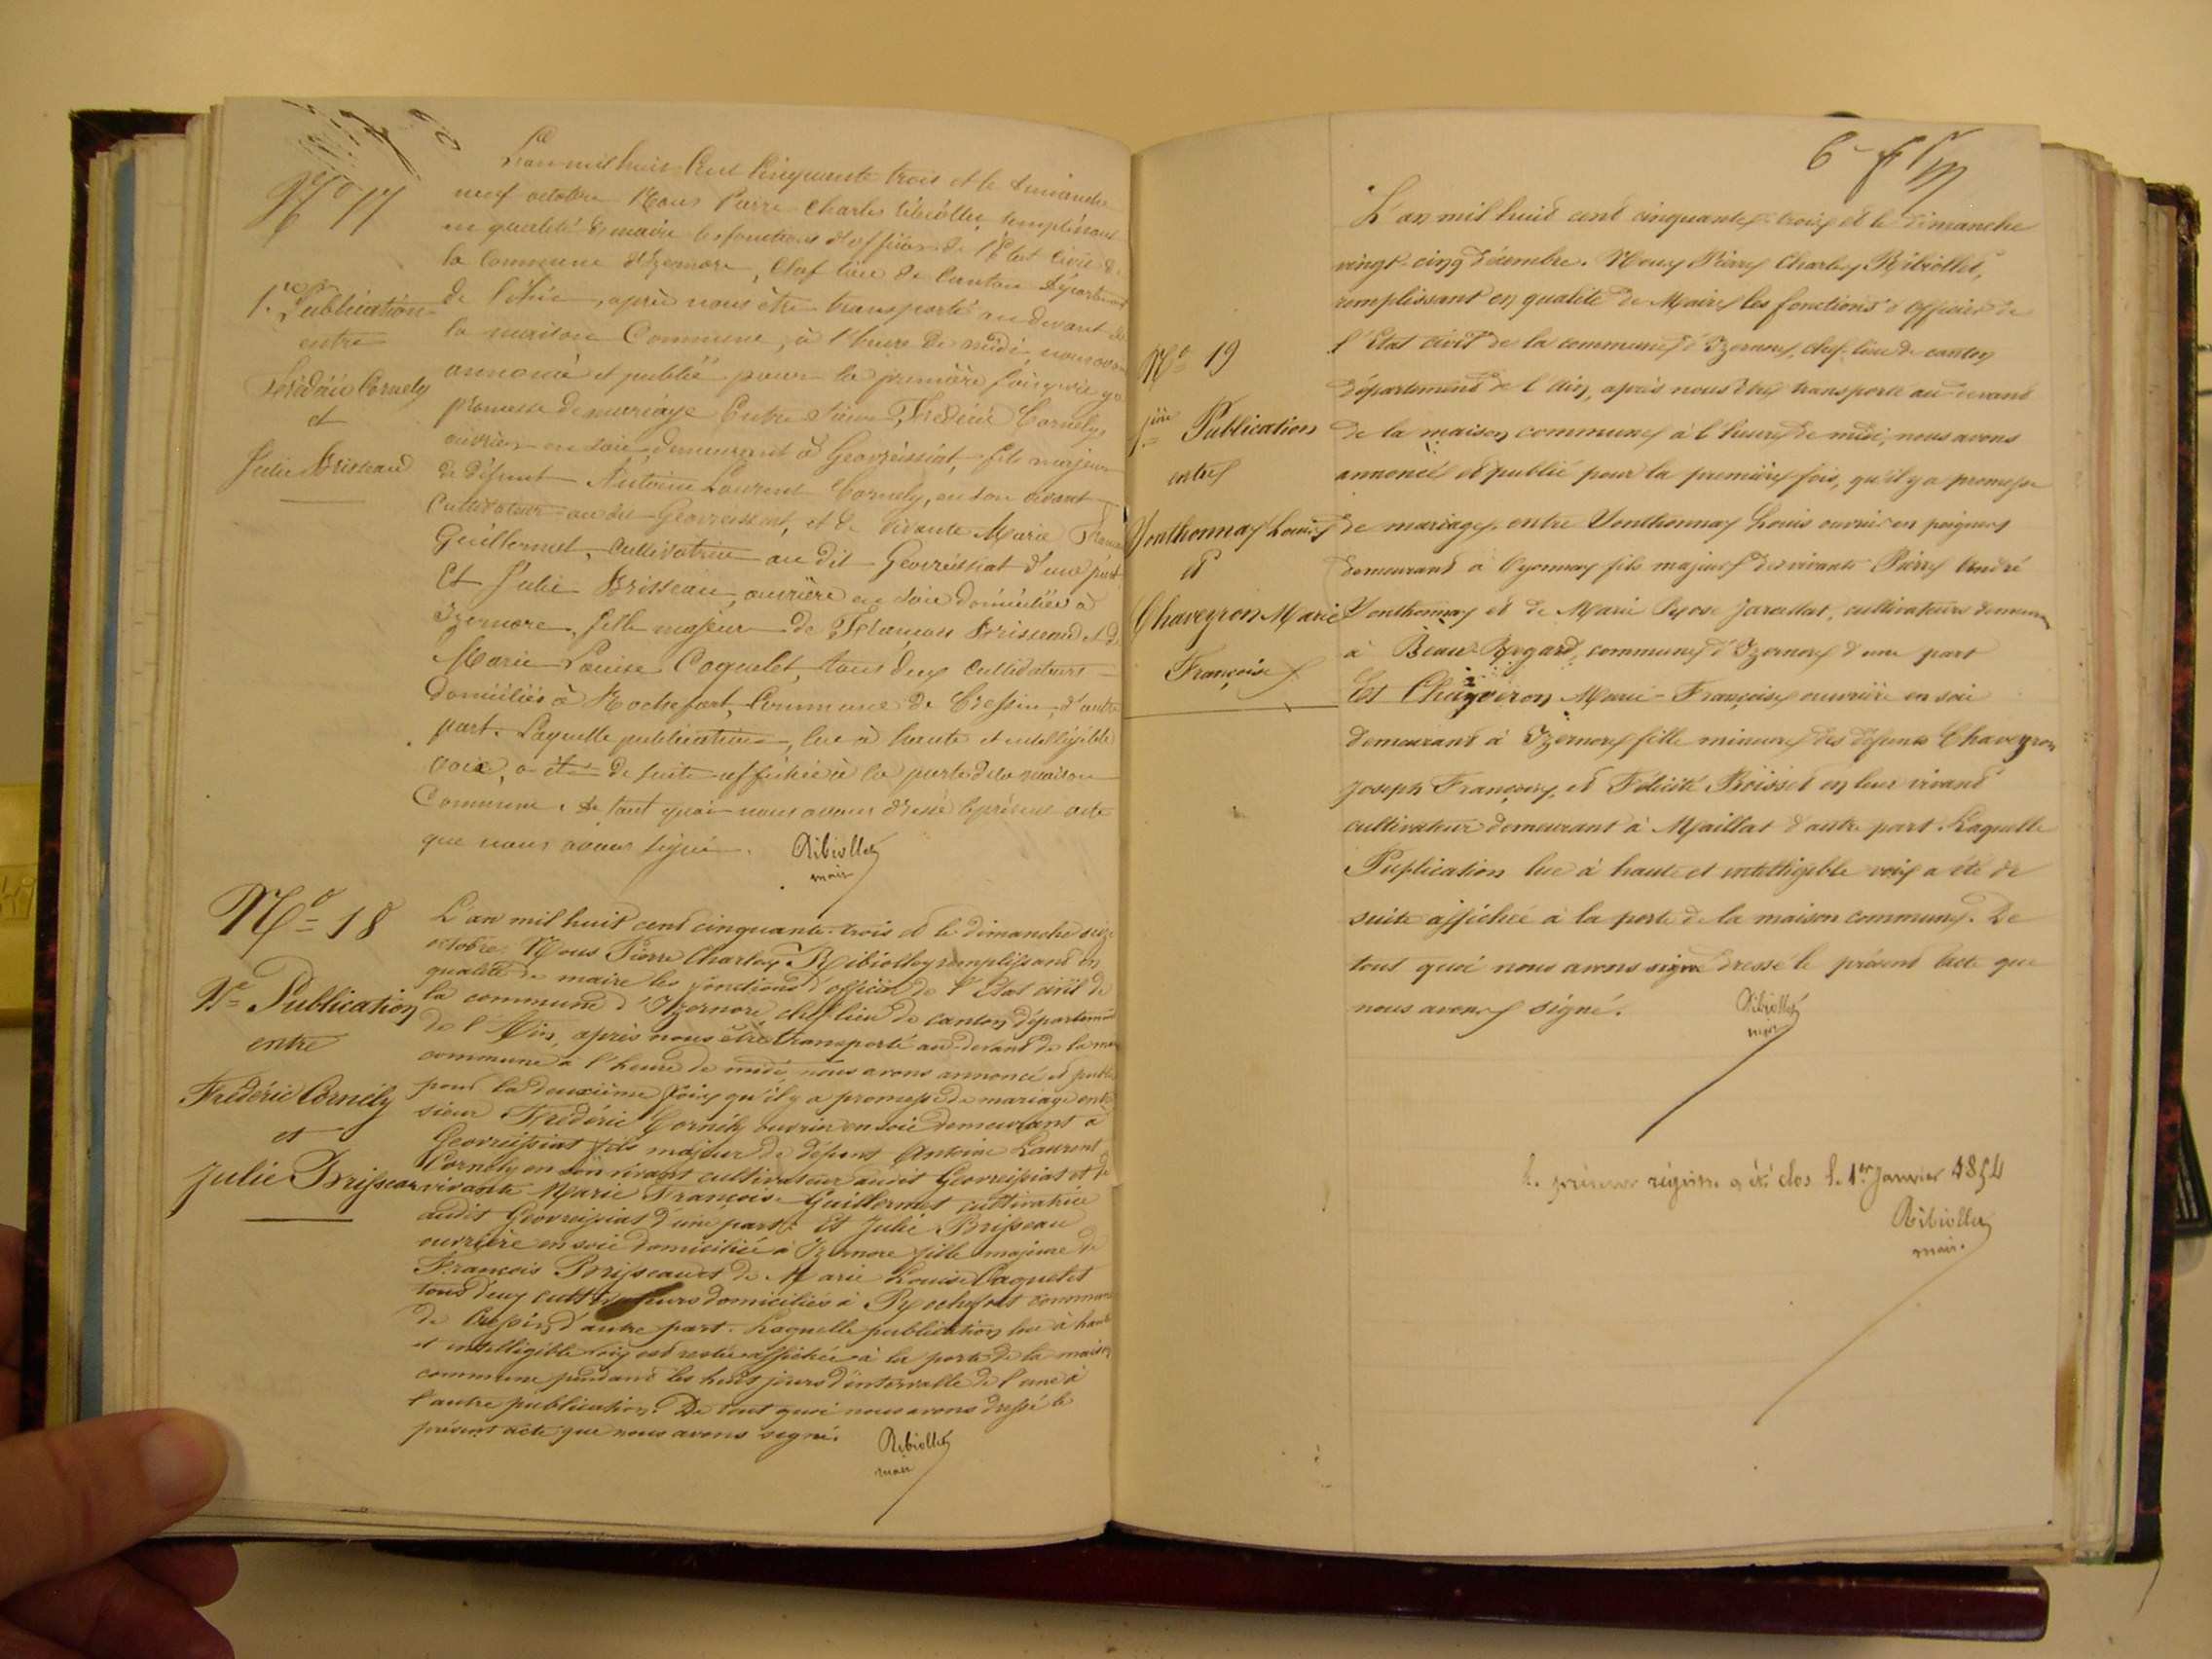 N° 17
1.re Publication
entre
Frédéric Cornély
et
Julie Brisseaud
L'an mil huit Cent Cinquante trois et le dimanche
neuf octobre Nous Pierre Charles Ribiollet, remplissant
en qualité de maire les fonctions d'officier de l'Etat Civil de
la Commune d'Izernore, Chef lieu de Canton Département
de l'Ain, après nous être transporté au devant de
la maison Commune, à l'heure de midi, nous avons
annoncé et publié pour la première fois qu'il y a
promesse de mariage Entre Sieur Frédéric Cornély,
ouvrier en soie, demeurant à Geovreissiat, fils majeur
de défunt Antoine Laurent Cornely, en son vivant
Cultivateur au dit Geovreissiat, et de vivante Marie
Guillermet, cultivatrice au dit Geovreissiat d'une part
Et Julie Brisseau, ouvrière en soie domiciliée à
Izernore, fille majeur de François Brisseaud et de
Marie Louise Coquelet, tous deux Cultivateurs
domiciliés à Rochefort, Commune de Cressin, d'autre
part. Laquelle publication, lue à haute et intelligible
voix, a été de suite affichée à la porte de la maison
Commune. de tout quoi nous avons dressé le présent acte
que nous avons signé. Ribiollet
maire
N° 18
2e Publication
entre
Frédéric Cornély
et
Julie Brisseau
L'an mil huit cent cinquante-trois et le dimanche seize
octobre Nous Pierre Charles Ribiollet remplissant en
qualité de maire les fonctions d'officier de l'Etat civil de
la commune d'Izernore, chef-lieu de canton département
de l'Ain, après nous être transporté au-devant de la
commune à l'heure de midi nous avons annoncé et publié
pour la deuxième fois qu'il y a promesse de mariage entre
sieur Frédéric Cornély ouvrier en soie demeurant à
Geovreissiat fils majeur de défunt Antoine Laurent
Cornély en son vivant cultivateur audit Geovreissiat et de
vivante Marie Françoise Guillermet cultivatrice
audit Geovreissiat d'une part. Et Julie Brisseau
ouvrière en soie domiciliée à Izernore fille majeure de
François Brisseau et de Marie Louise Coquelet
tous deux cultivateurs domiciliés à Rochefort commune
de Cressin d'autre part. Laquelle publication lue à haute
et intelligible voix est restée affichée à la porte de la maison
commune pendant les huit jours d'intervalle de l'une à
l'autre publication. De tout quoi nous avons dressé le
présent acte que nous avons signé. Ribiollet
maire
N° 19
1.ière Publication
entre
Vonthonnay Louis
et
Chaveyron Marie
Françoise
L'an mil huit cent cinquante-trois et le dimanche
vingt-cinq décembre. Nous Pierre Charles Ribiollet,
remplissant en qualité de Maire les fonctions d'Officier de
l'Etat civil de la commune d'Izernore, chef-lieu de canton
département de l'Ain, après nous être transporté au-devant
de la maison commune à l'heure de midi, nous avons
annoncé et publié pour la première fois, qu'il y a promesse
de mariage, entre Vonthonnay Louis ouvrier en peignes
demeurant à Oyonnax fils majeur des vivants Pierre André
Vonthonnay et de Marie Rose Jaraillat, cultivateurs
à Beau-Regard, commune d'Izernore d'une part
Et Chaveiron Marie-Françoise ouvrière en soie
demeurant à Izernore fille mineure des défunts Chaveyron
Joseph François, et Félicité Boisset en leur vivant
cultivateur demeurant à Maillat d'autre part. Laquelle
Puplication lue à haute et intelligible voix a été de
suite affichée à la porte de la maison commune. De
tout quoi nous avons signé dressé le présent acte que
nous avons signé. Ribiollet
maire
le présent régistre a été clos le 1er Janvier 1854
Ribiollet
maire.